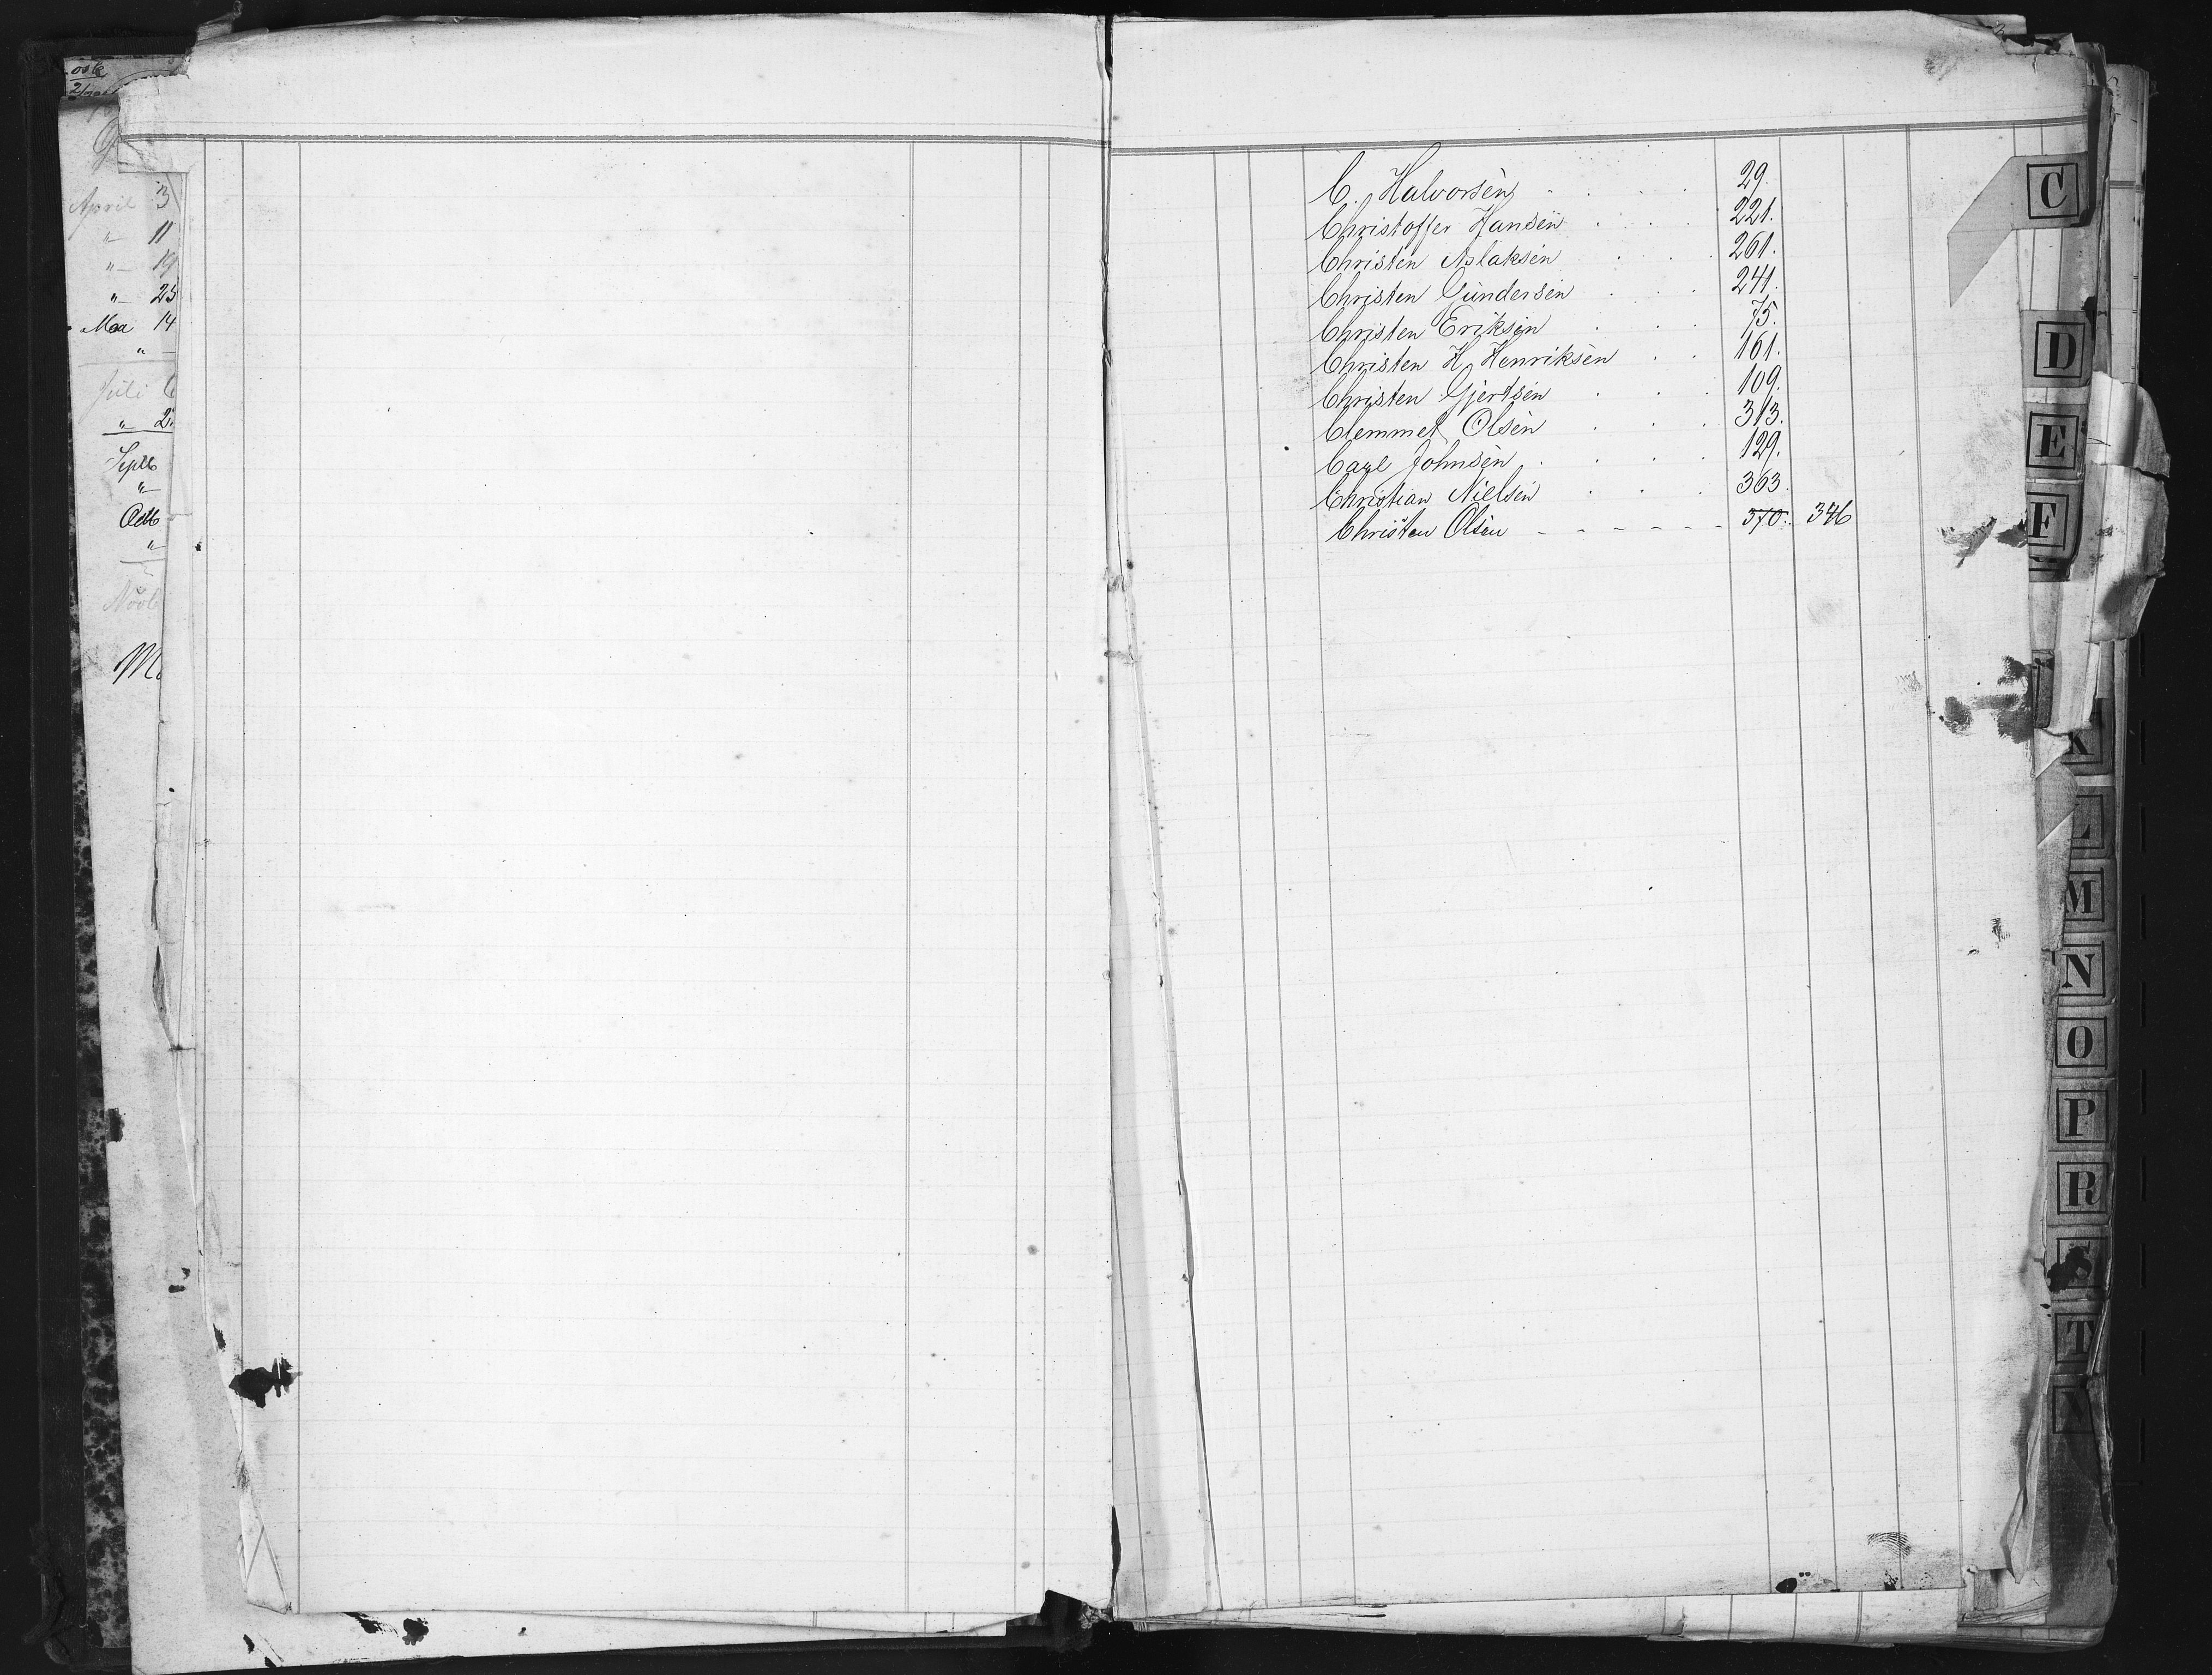 April 3
" 11
" 19
" 25
Mai 14
"
Juli 6
" 2
Septb
"
Octb
"
Novb
C. Halvorsen 29.
Christoffer Hansen 221.
Christen Aslaksen 261.
Christen Gundersen 241.
Christen Eriksen 75.
Christen H. Henriksen 161.
Christen Gjertsen 109.
Clemmet Olsen 313.
Carl Johnsen 129.
Christian Nielsen 363.
Christen Olsen - - - - - 370. 346
C
D
E
F
K
L
M
N
O
P
R
S
T